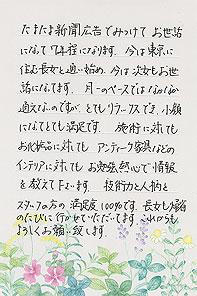 たまたま新聞広告でみつけて お世話
になって 7年程になります。今は東京に
住む長女と通い始め、今は次女もお世話
になってます。月一のペースではなかなか
通えないのですが、とてもリラックスでき、小顔
になってとても満足です。 施術に対しても
お化粧品に対しても アンティーク家具などの
インテリアに対しても お勉強熱心で情報
を教えて下さいます。 技術力と人柄と
スタッフの方の満足度100%です。長女も帰省
のたびに行かせていただいてます。これからも
よろしくお願い致します。